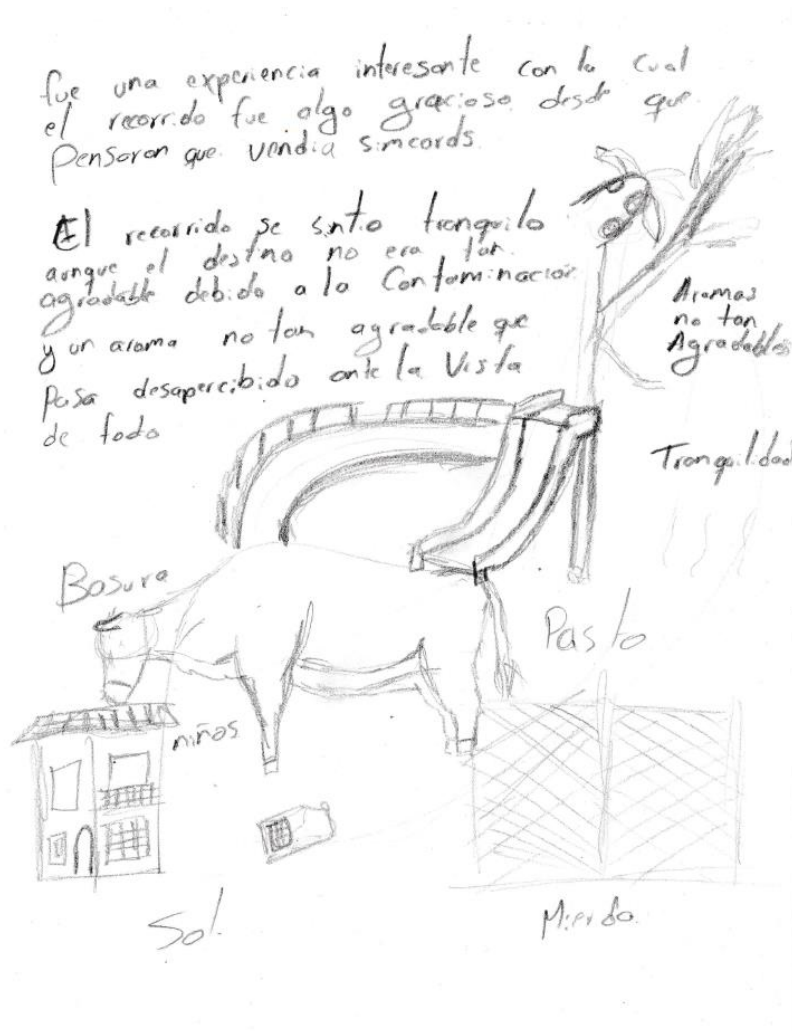 fue una experiencia interesante con la cual
el recorrido fue algo gracioso desde que
Pensaron que vendia simcards
El recorrido se sintio tranquilo
aunque el destino no era tan
agradable debido a la Contaminacion
y un aroma no tan agradable que
Pasa desapercibido ante la Vista
de todo
Aromas
no tan
Agradables
Tranquilidad
Basura
Pasto
niños
Sol
Mierda